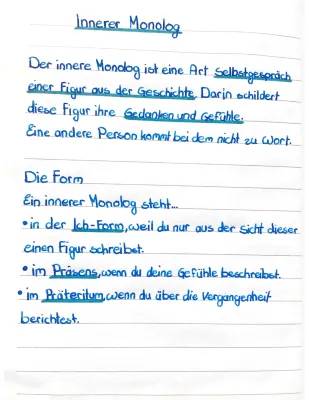 Innerer Monolog
Der innere Monolog ist eine Art Selbstgespräch
einer Figur aus der Geschichte. Darin schildert
diese Figur ihre Gedanken und Gefühle.
Eine andere Person kommt bei dem nicht zu Wort.
Die Form
Ein innerer Monolog steht...
• in der Ich-Form, weil du nur aus der Sicht dieser
einen Figur schreibst.
• im Präsens, wenn du deine Gefühle beschreibst.
• im Präteritum, wenn du über die Vergangenheit
berichtest.